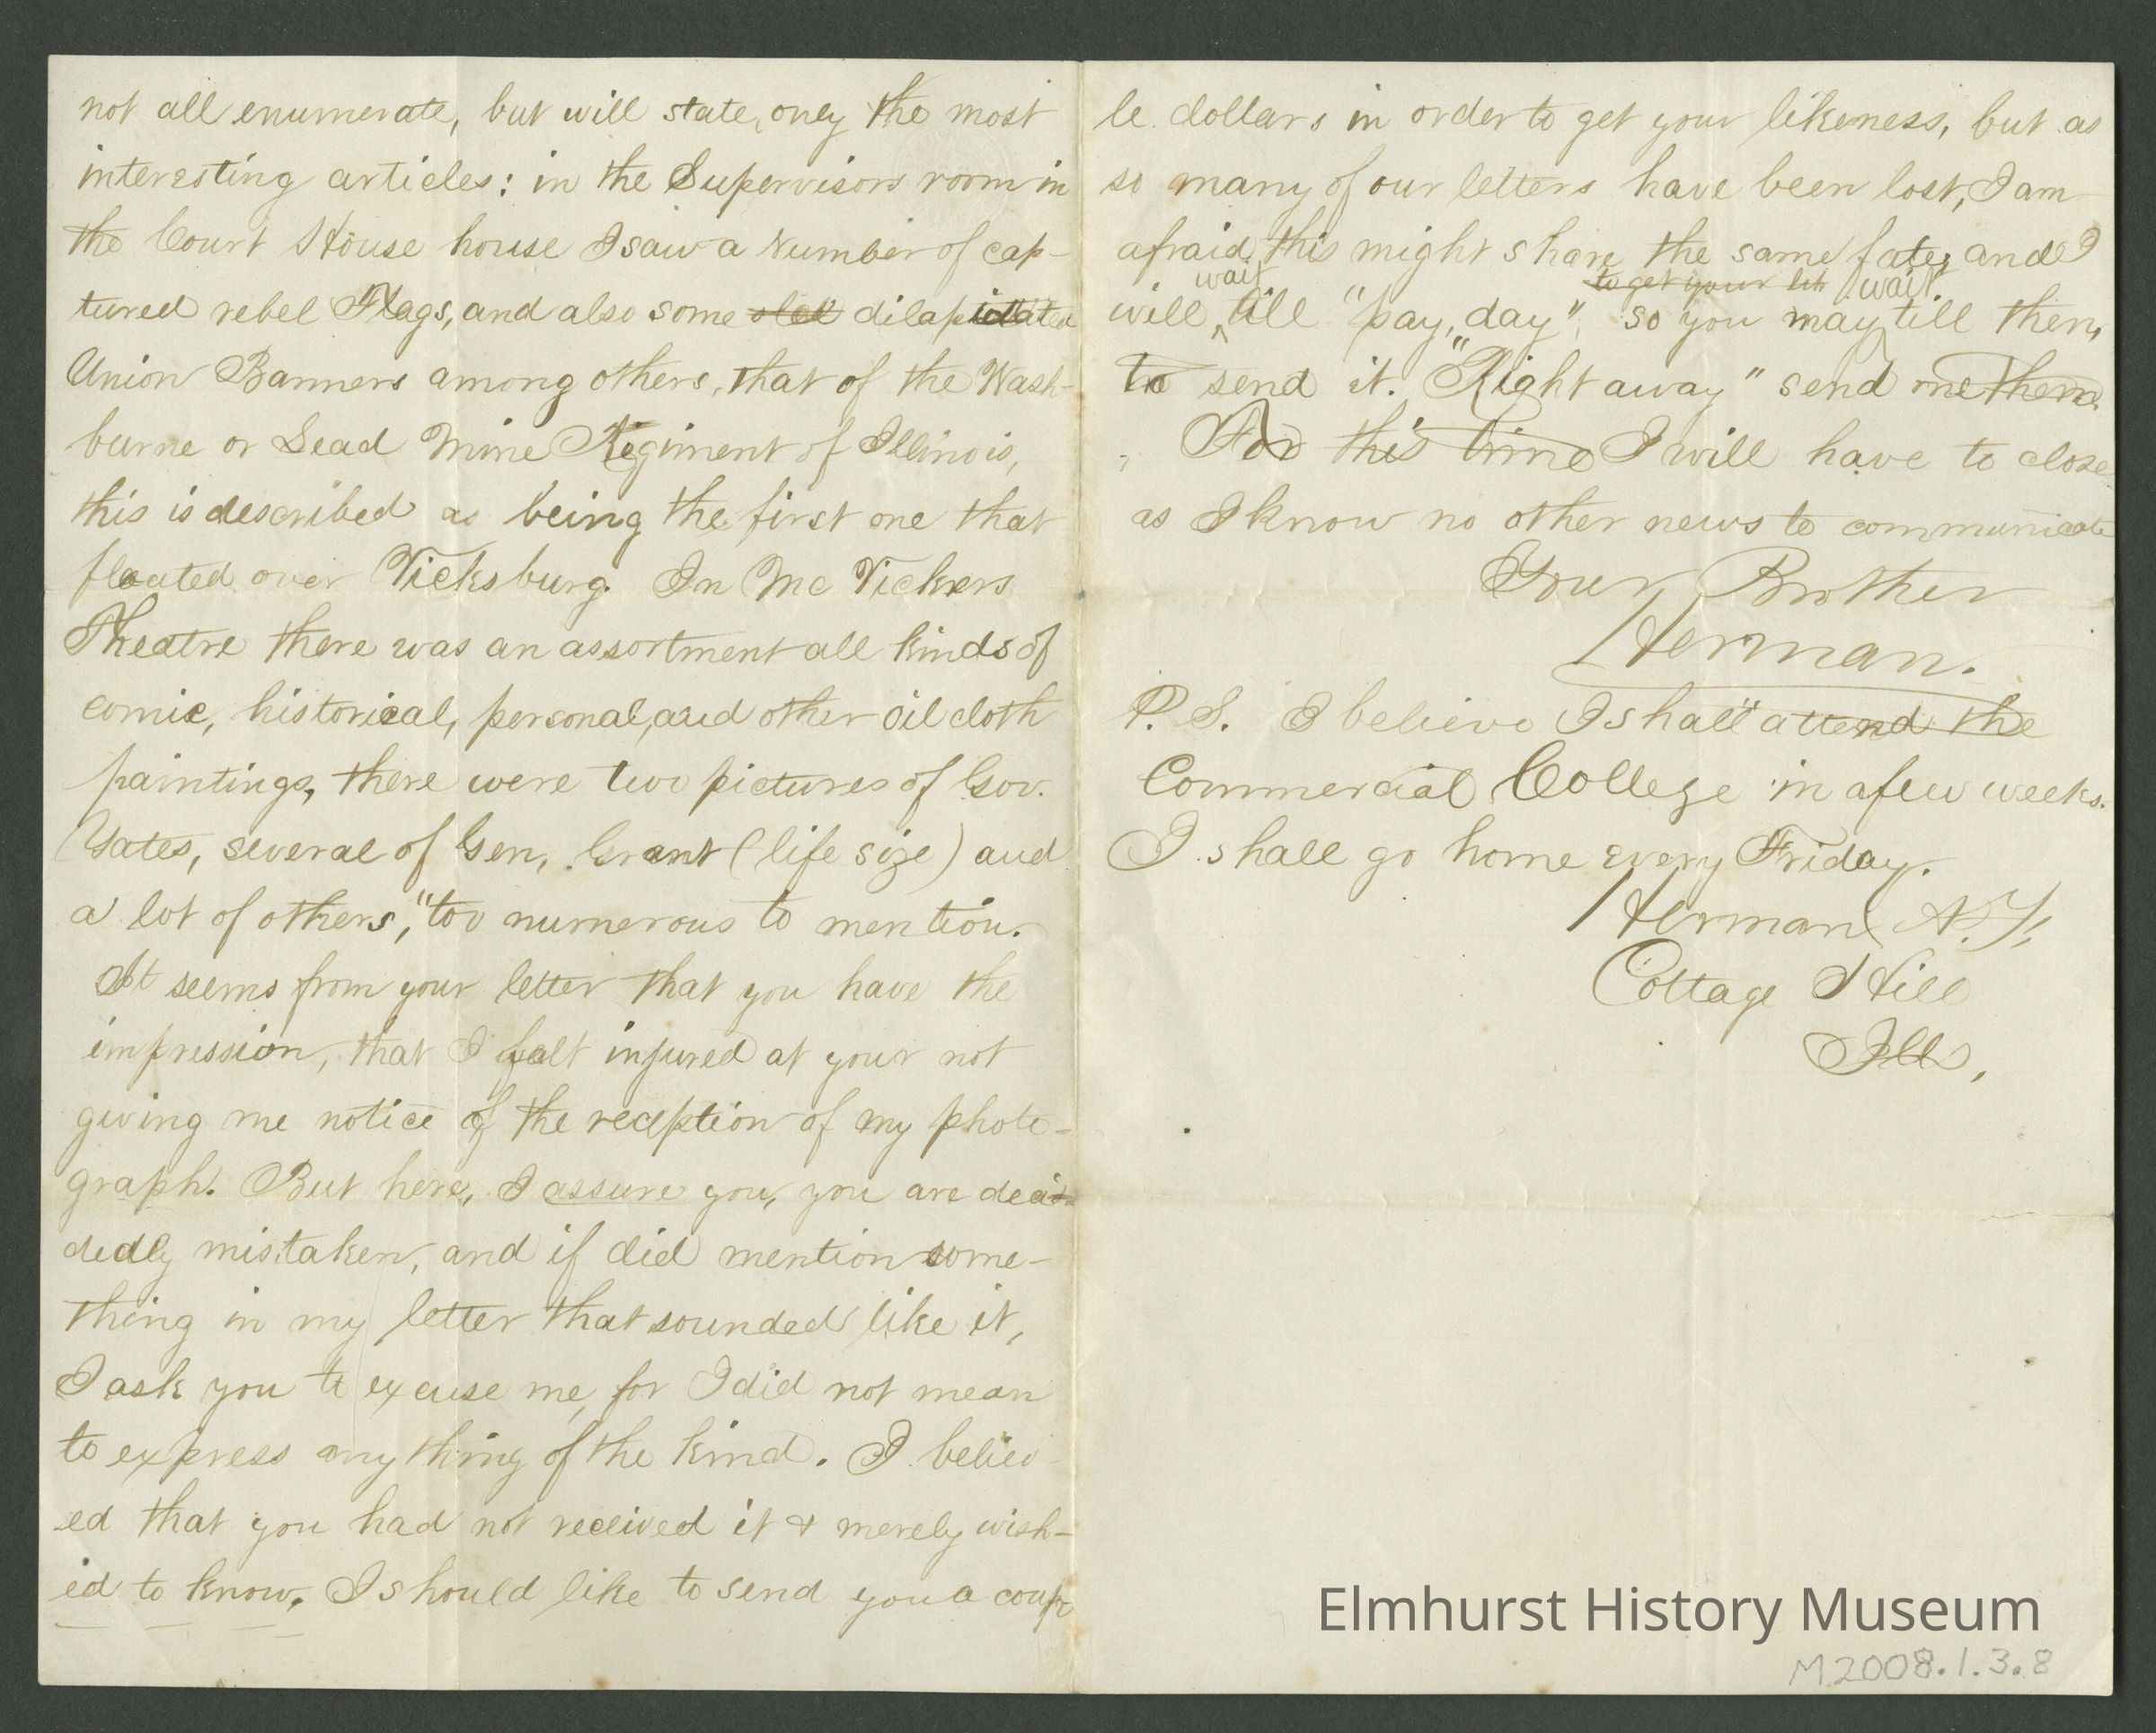 not all enumerate, but will state, only the most
interesting articles: in the Supervisors room in
the Court House house I saw a Number of cap-
tured rebel Flags, and also some dilapidated
Union Banners among others, that of the Wash-
burne or Lead Mine Regiment of Illinois,
this is described as being the first one that
floated over Vicksburg. In Mc Vickers
Theatre there was an assortment all kinds of
comic, historical, personal, and other oil cloth
paintings, there were two pictures of Gov.
Yates, several of Gen, Grant (life size) and
a lot of others, "too numerous to mention.
It seems from your letter that you have the
impression, that I felt injured at your not
giving me notice of the reception of my photo-
graph. But here, I assure you, you are deci-
dedly mistaken, and if did mention some-
thing in my letter that sounded like it,
I ask you to excuse me, for I did not mean
to express any thing of the kind. I believ-
ed that you had not received it & merely wish-
ed to know. I should like to send you a coup
le dollars in order to get your likeness, but as
so many of our letters have been lost, I am
afraid this might share the same fate, and I
wait to get your lik wait
will till "pay, day", so you may till then,
to send it. "Right away" send me them.
For this time I will have to close
as I know no other news to communicate
Your Brother
Herman.
P. S. I believe I shall attend the
Commercial College in a few weeks.
I shall go home every Friday.
Herman A. F.
Cottage Hill
Ills,
Elmhurst History Museum
M2008.1.3.8